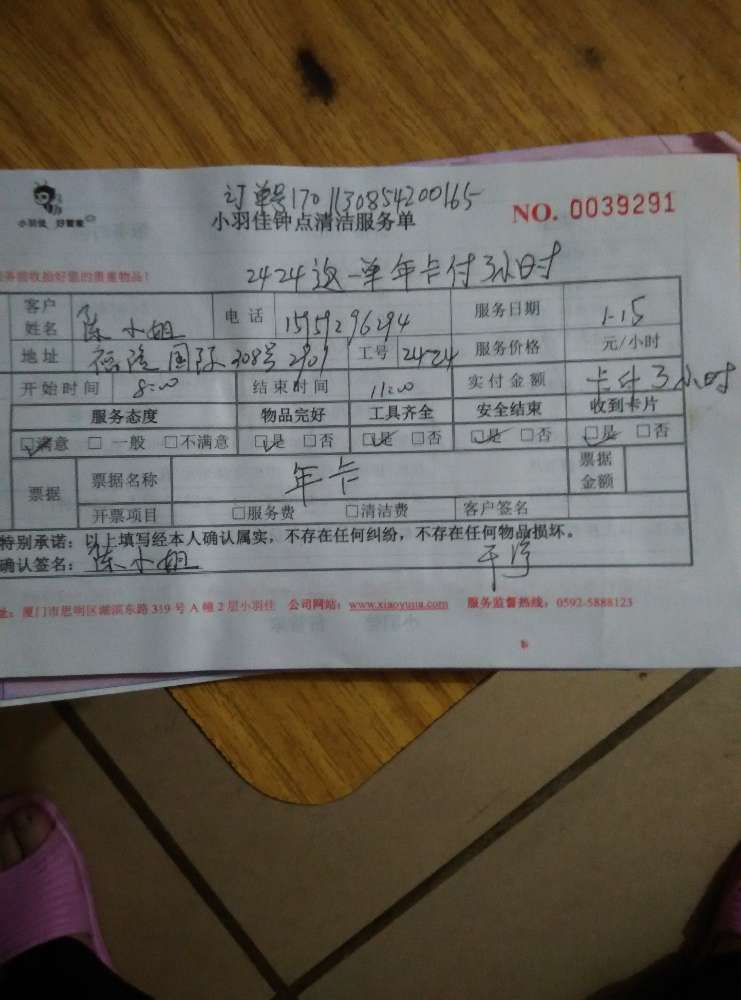 订单号1701130854200165
小羽佳 好管家
小羽佳钟点清洁服务单
NO. 0039291
务前收拾好您的贵重物品！
2424这一单年卡付3小时
客户姓名 陈小姐 电话 15959296294 服务日期 1-15
地址 福隆国际308号2909 工号 2424 服务价格 元/小时
开始时间 8:00 结束时间 11:00 实付金额 卡付3小时
服务态度 物品完好 工具齐全 安全结束 收到卡片
☑满意 □一般 □不满意 ☑是 □否 ☑是 □否 ☑是 □否 ☑是 □否
票据 票据名称 年卡 票据金额
开票项目 □服务费 □清洁费 客户签名
特别承诺：以上填写经本人确认属实，不存在任何纠纷，不存在任何物品损坏。
确认签名： 陈小姐
址：厦门市思明区湖滨东路319号A幢2层小羽佳 公司网站：www.xiaoyujia.com 服务监督热线：0592-5888123